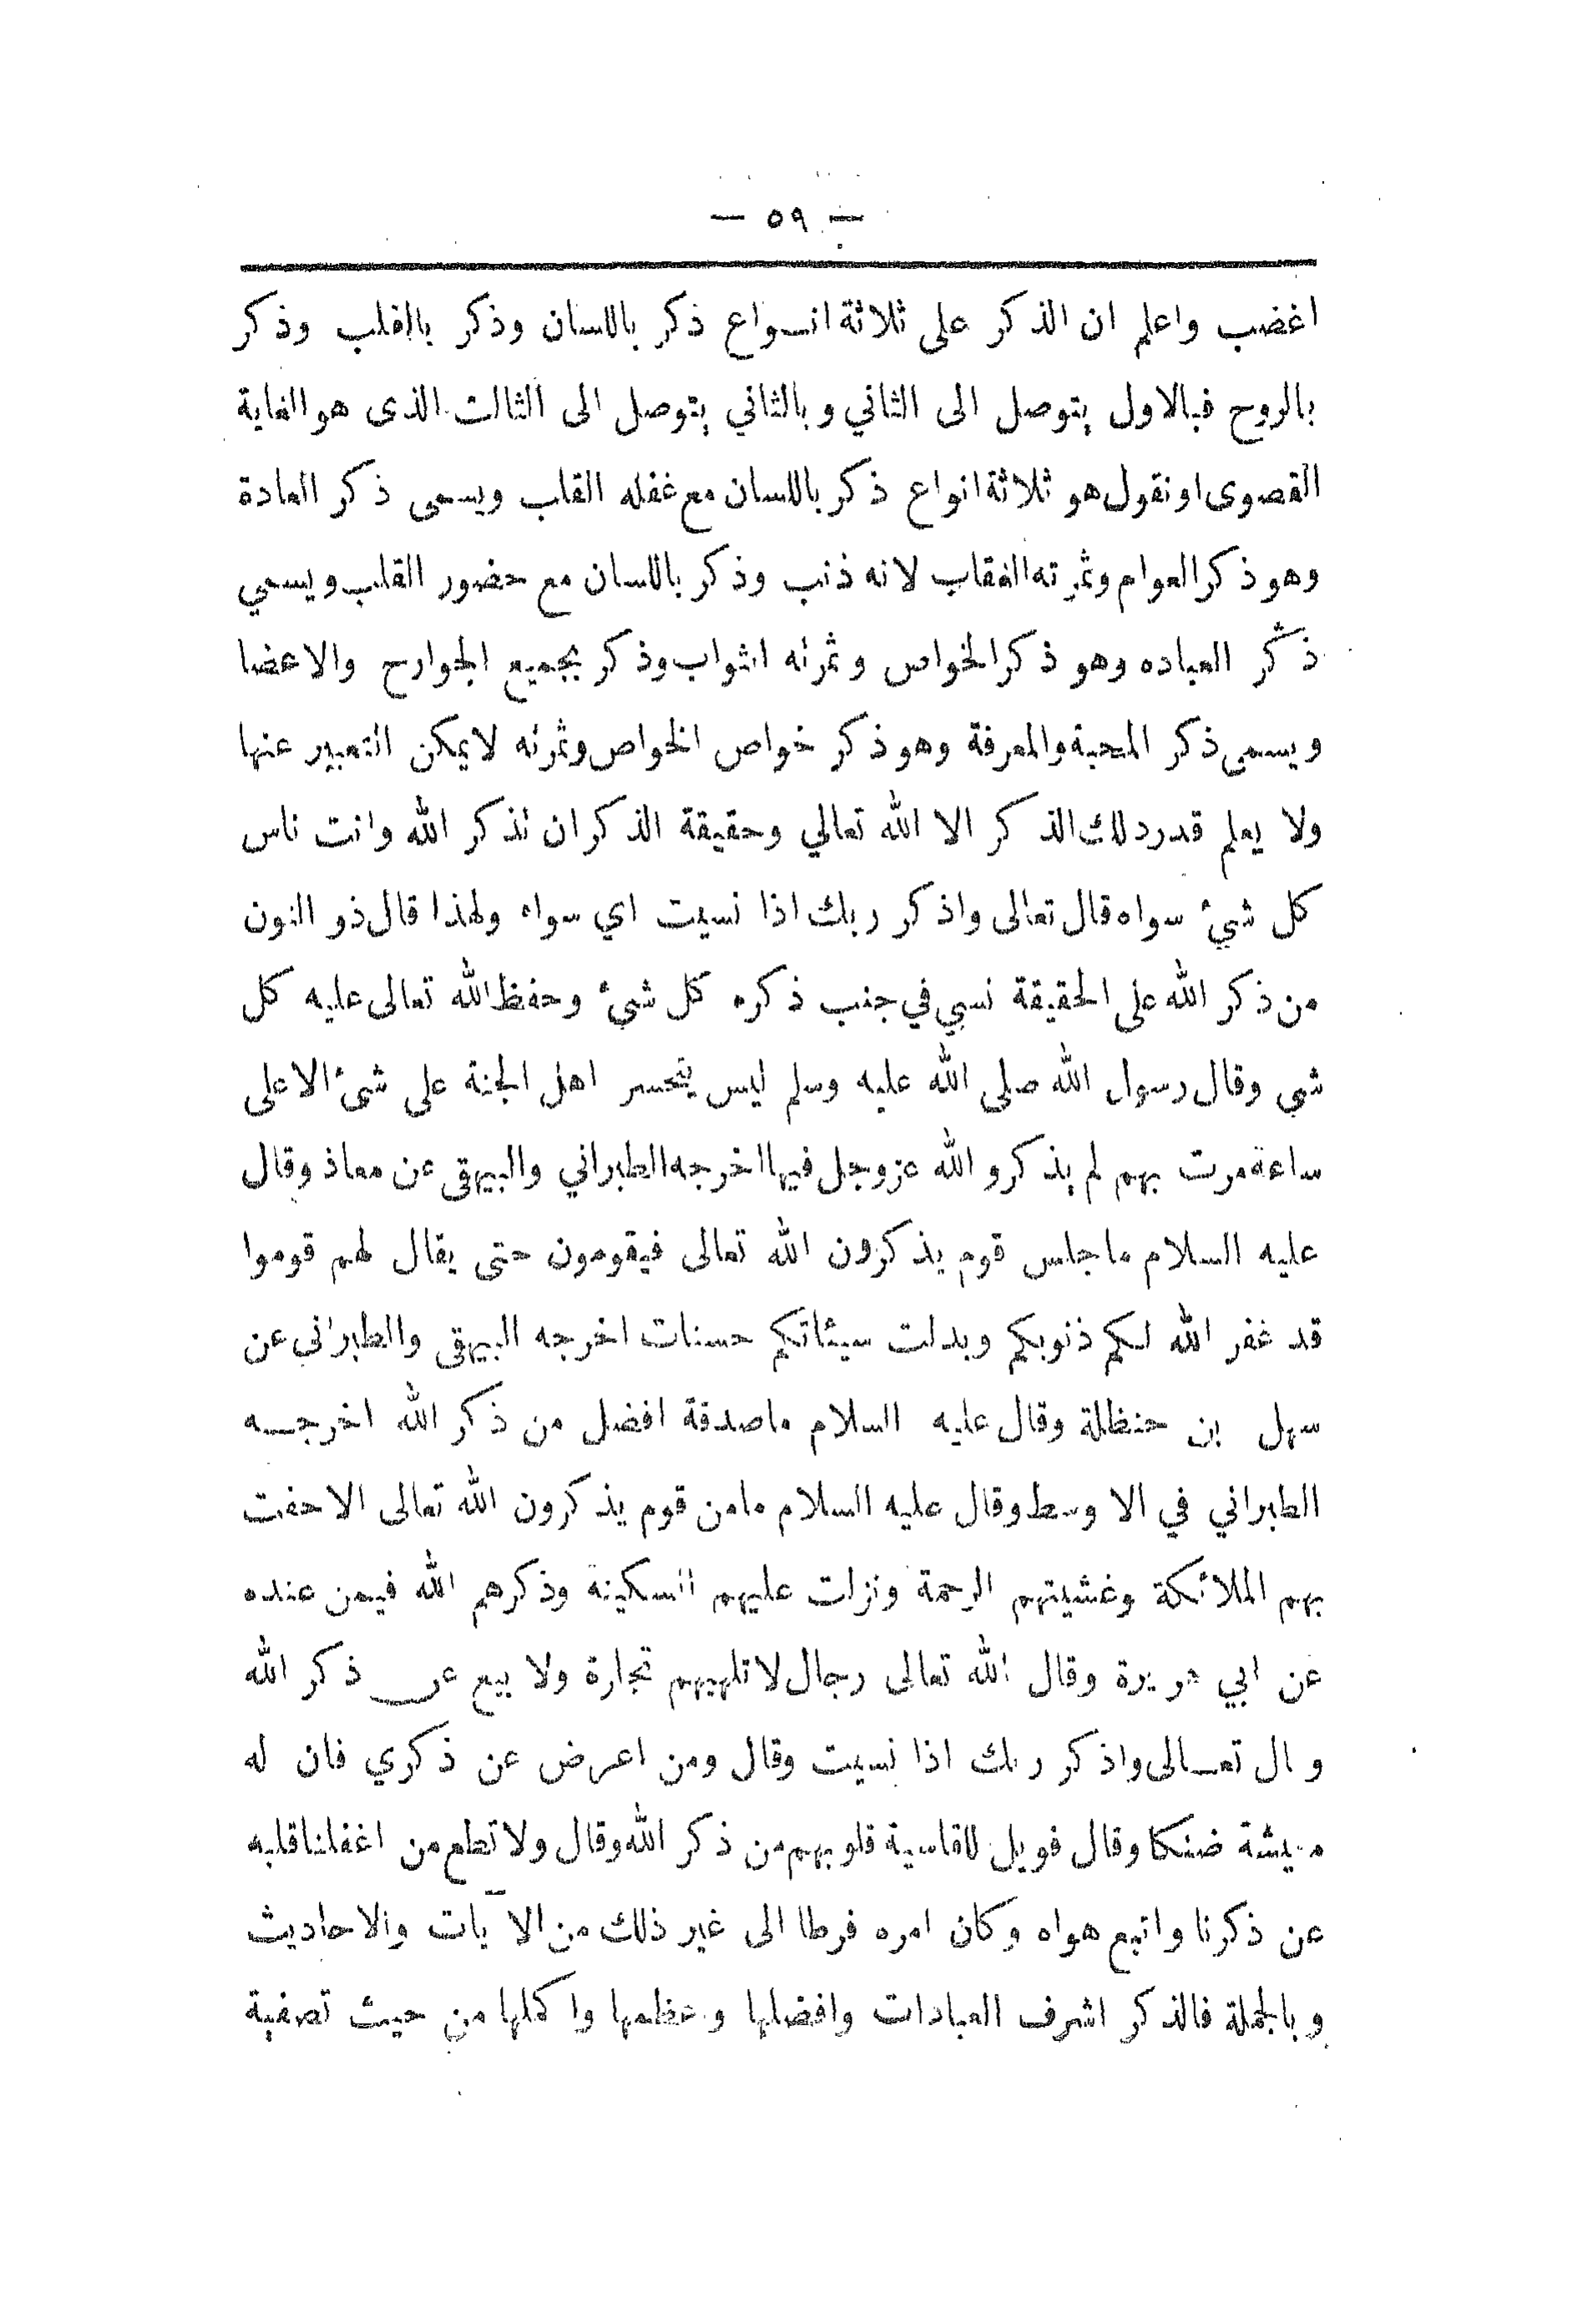 — ٥٩ —
اغضب واعلم ان الذكر على ثلاثة انواع ذكر باللسان وذكر بالقلب وذكر
بالروح فبالاول يتوصل الى الثاني وبالثاني يتوصل الى الثالث الذى هو الغاية
القصوى او نقول هو ثلاثة انواع ذكر باللسان مع غفله القلب ويسمى ذكر العادة
وهو ذكر العوام وثمرته العقاب لانه ذنب وذكر باللسان مع حضور القلب ويسمي
ذكر العباده وهو ذكر الخواص وثمرته الثواب وذكر بجميع الجوارح والاعضا
ويسمى ذكر المحبة والمعرفة وهو ذكر خواص الخواص وثمرته لايمكن التعبير عنها
ولا يعلم قدر ذلك الذكر الا الله تعالي وحقيقة الذكر ان تذكر الله وانت ناس
كل شيء سواه قال تعالى واذكر ربك اذا نسيت اي سواه ولهذا قال ذو النون
من ذكر الله على الحقيقة نسي في جنب ذكره كل شيء وحفظ الله تعالى عليه كل
شي وقال رسول الله صلى الله عليه وسلم ليس يتحسر اهل الجنة على شيء الا على
ساعة مرت بهم لم يذكرو الله عز وجل فيها اخرجه الطبراني والبيهقى عن معاذ وقال
عليه السلام ماجلس قوم يذكرون الله تعالى فيقومون حتى يقال لهم قوموا
قد غفر الله لكم ذنوبكم وبدلت سيئاتكم حسنات اخرجه البيهقى والطبرانى عن
سهل بن حنظلة وقال عليه السلام ماصدقة افضل من ذكر الله اخرجه
الطبراني في الاوسط وقال عليه السلام مامن قوم يذكرون الله تعالى الا حفت
بهم الملائكة وغشيتهم الرحمة ونزلت عليهم السكينة وذكرهم الله فيمن عنده
عن ابي هريرة وقال الله تعالى رجال لاتلهيهم تجارة ولا بيع عن ذكر الله
وقال تعالى واذكر ربك اذا نسيت وقال ومن اعرض عن ذكري فان له
معيشة ضنكا وقال فويل للقاسية قلوبهم من ذكر الله وقال ولا تطع من اغفلنا قلبه
عن ذكرنا واتبع هواه وكان امره فرطا الى غير ذلك من الآيات والاحاديث
وبالجملة فالذكر اشرف العبادات وافضلها وعظمها واكملها من حيث تصفية